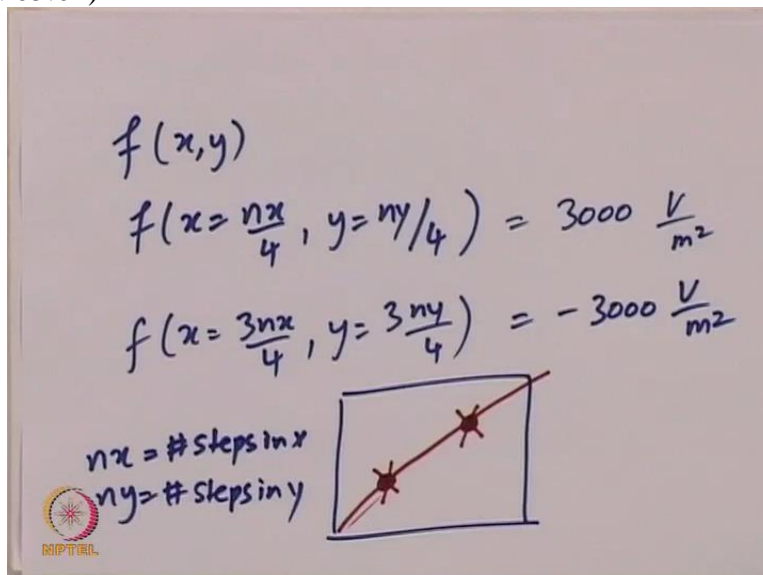 f(x,y)
f(x=nx/4, y=ny/4) = 3000 V/m²
f(x=3nx/4, y=3ny/4) = -3000 V/m²
nx=#steps in x
ny=#steps in y
NPTEL